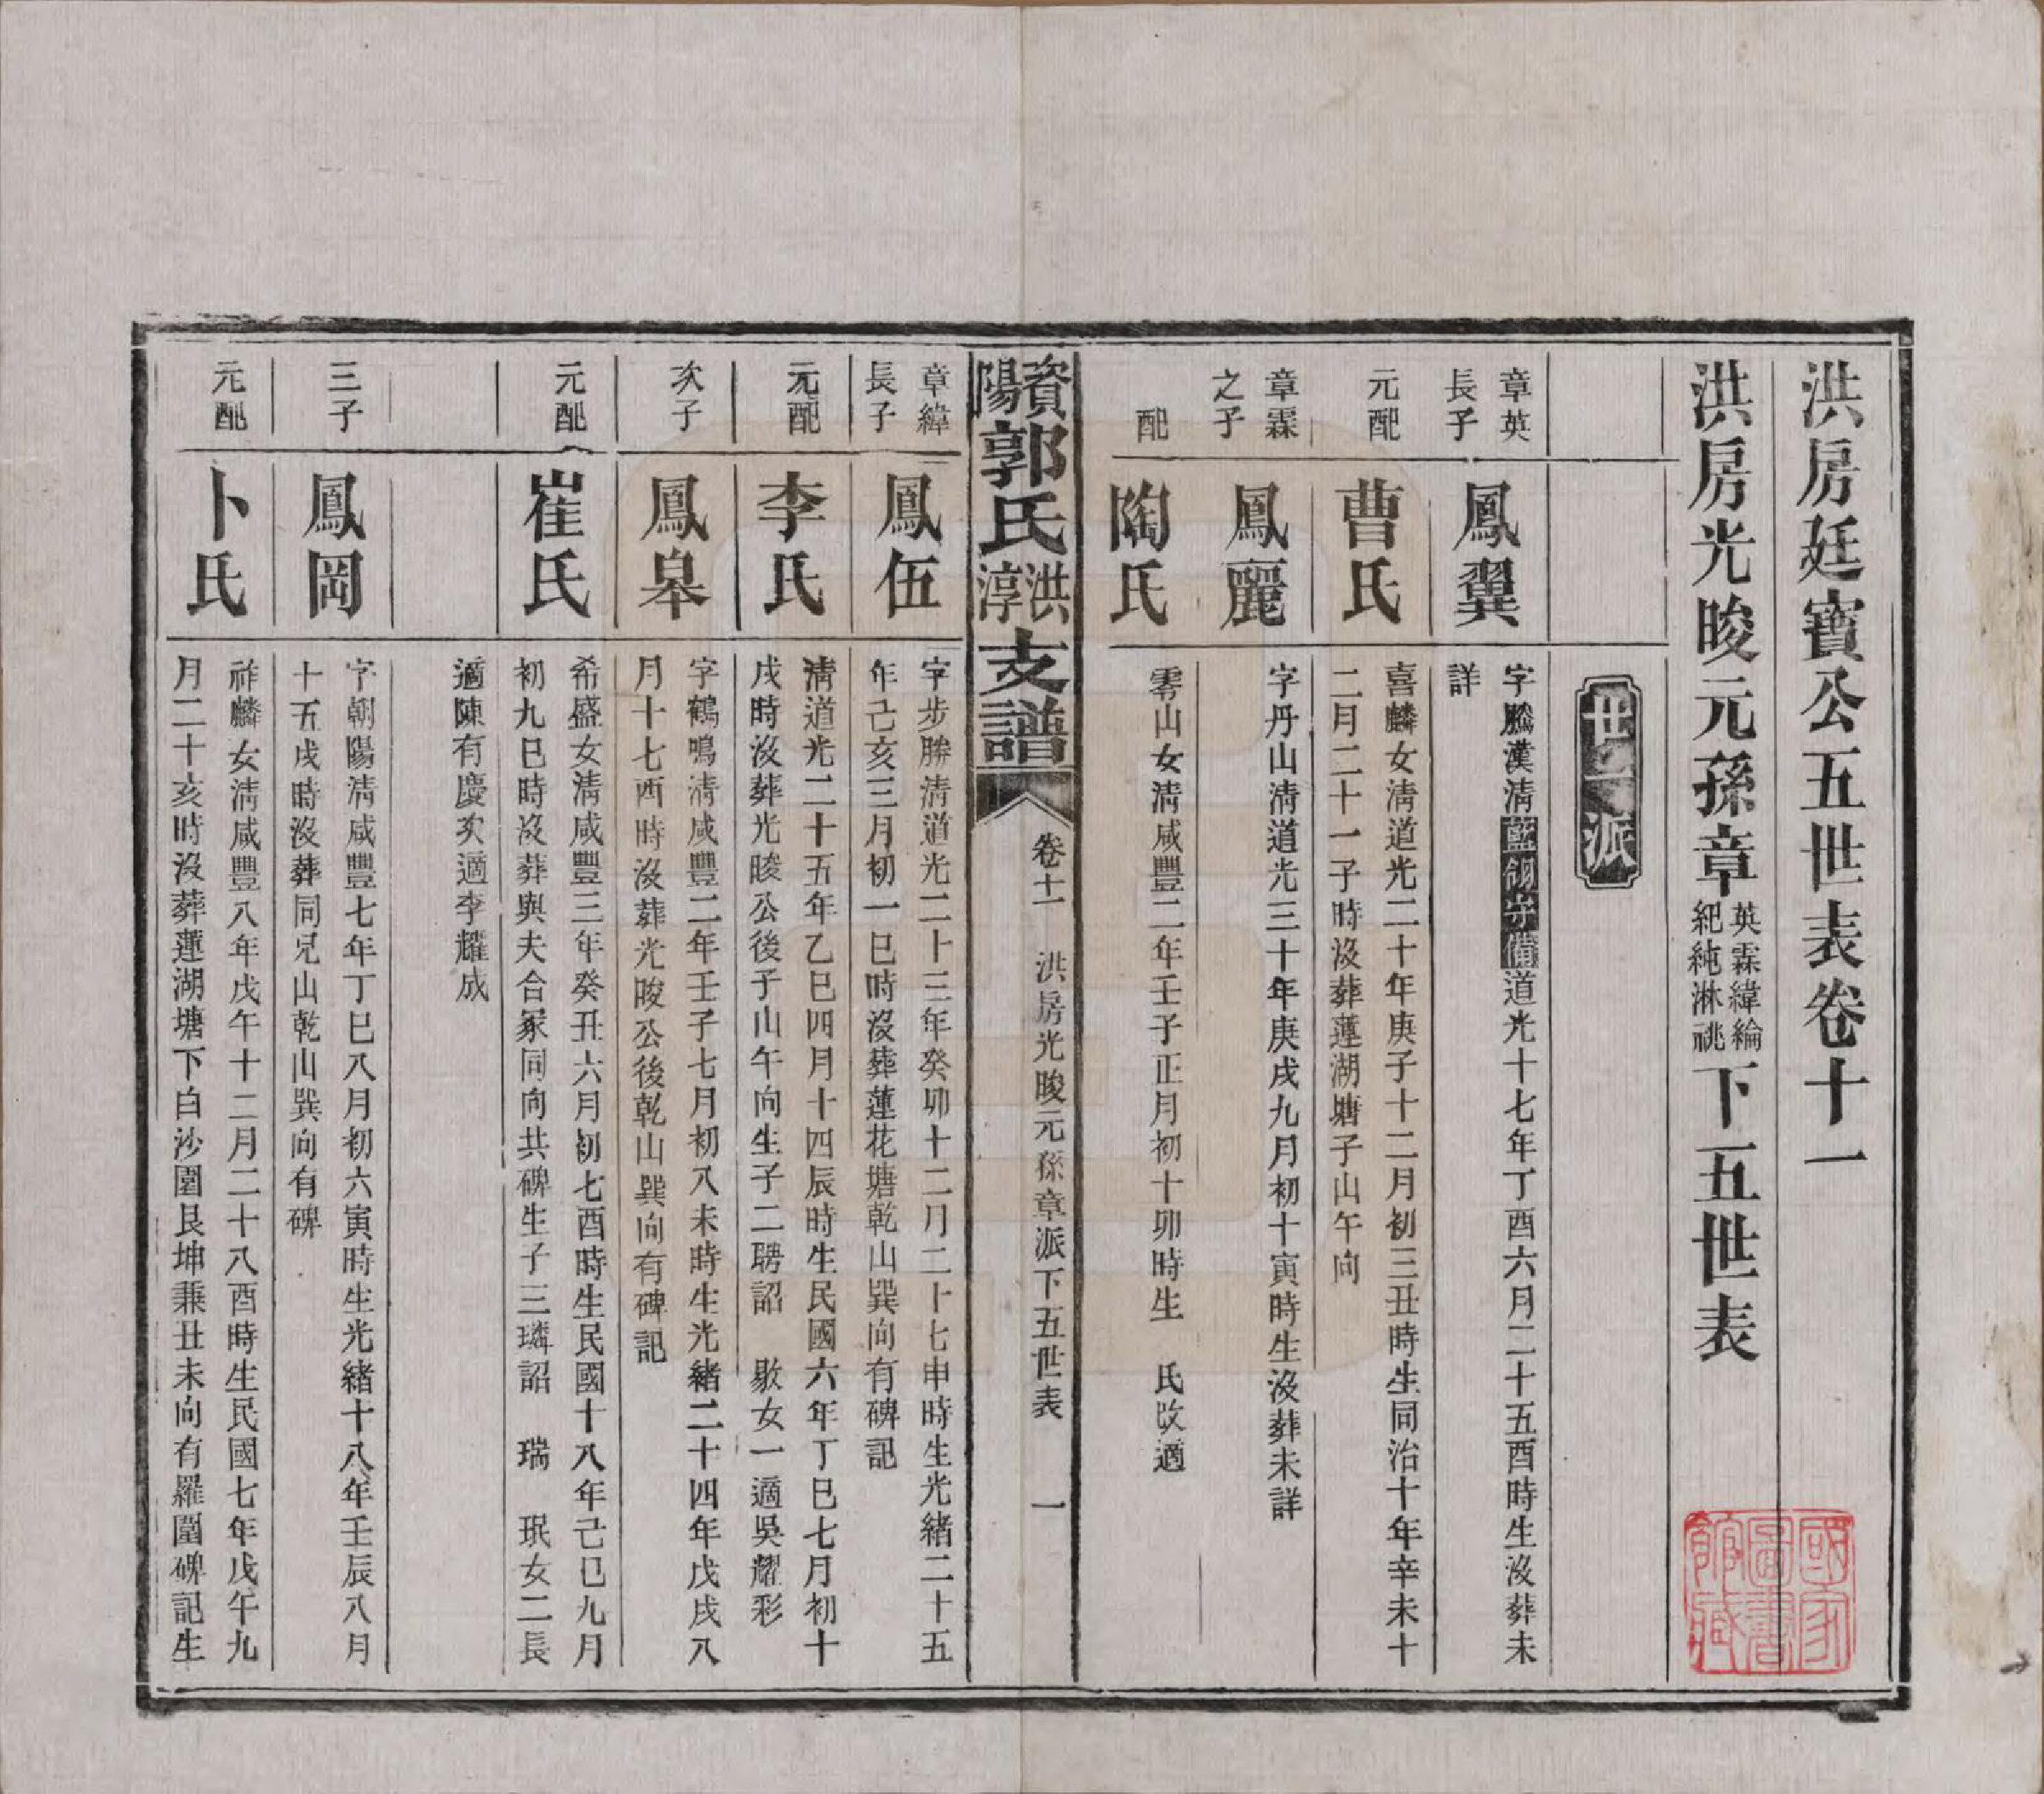 洪房廷寶公五世表卷十一
洪房光晙元孫章
英霖緯綸
紀純淋祧
下五世表
世派
章英
長子
鳳翼
字騰漢清藍翎守備道光十七年丁酉六月二十五酉時生沒葬未
詳
元配
曹氏
喜麟女清道光二十年庚子十二月初三丑時生同治十年辛未十
二月二十一子時沒葬蓮湖塘子山午向
章霖
之子
鳳麗
字丹山清道光三十年庚戌九月初十寅時生沒葬未詳
配
陶氏
零山女清咸豐二年壬子正月初十卯時生 氏改適
資陽郭氏洪淳支譜
卷十一 洪房光晙元孫章派下五世表 一
章緯
長子
鳳伍
字步勝清道光二十三年癸卯十二月二十七申時生光緒二十五
年己亥三月初一巳時沒葬蓮花塘乾山巽向有碑記
元配
李氏
清道光二十五年乙巳四月十四辰時生民國六年丁巳七月初十
戌時沒葬光晙公後子山午向生子二聘詔 歇女一適吳耀彩
次子
鳳皋
字鶴鳴清咸豐二年壬子七月初八未時生光緒二十四年戊戌八
月十七酉時沒葬光晙公後乾山巽向有碑記
元配
崔氏
希盛女清咸豐三年癸丑六月初七酉時生民國十八年己巳九月
初九巳時沒葬與夫合冢同向共碑生子三璘詔 瑞 珉女二長
適陳有慶次適李耀成
三子
鳳岡
字朝陽清咸豐七年丁巳八月初六寅時生光緒十八年壬辰八月
十五戌時沒葬同兄山乾山巽向有碑
元配
卜氏
祥麟女清咸豐八年戊午十二月二十八酉時生民國七年戊午九
月二十亥時沒葬蓮湖塘下白沙圍艮坤兼丑未向有羅圍碑記生
國家
圖書
館藏